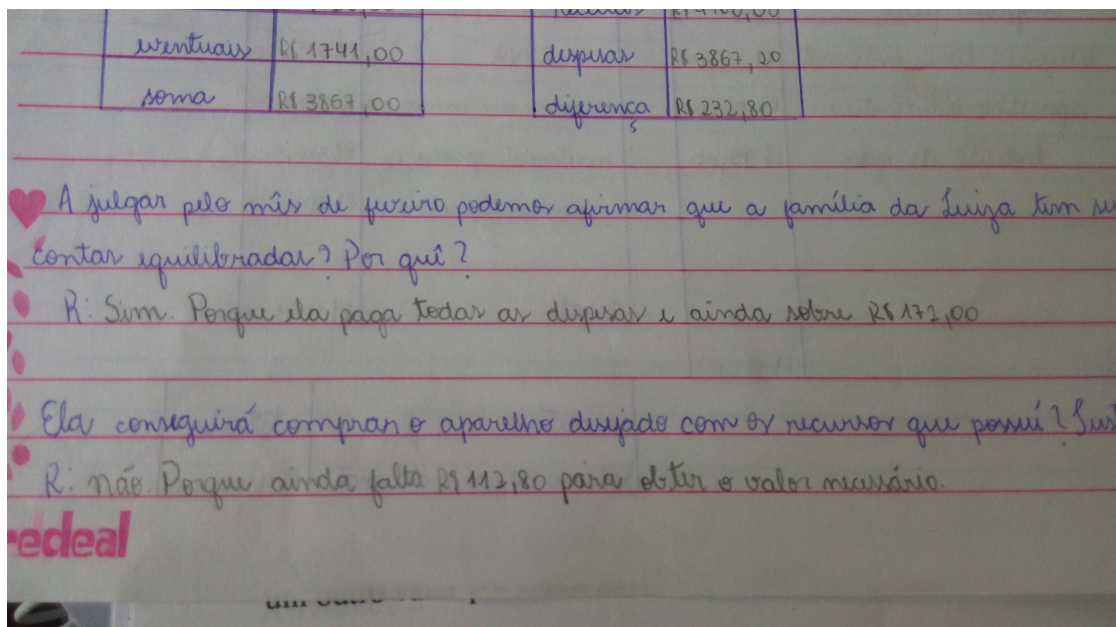 eventuais R$ 1741,00 despesas R$ 3867,20
soma R$ 3867,00 diferença R$ 232,80
A julgar pelo mês de fevereiro podemos afirmar que a família da Luiza tem
contas equilibradas? Por quê?
R: Sim. Porque ela paga todas as despesas e ainda sobre R$ 172,00
Ela conseguirá comprar o aparelho desejado com os recursos que possuí?
R: não. Porque ainda falta R$ 112,80 para obter o valor necessário.
redeal